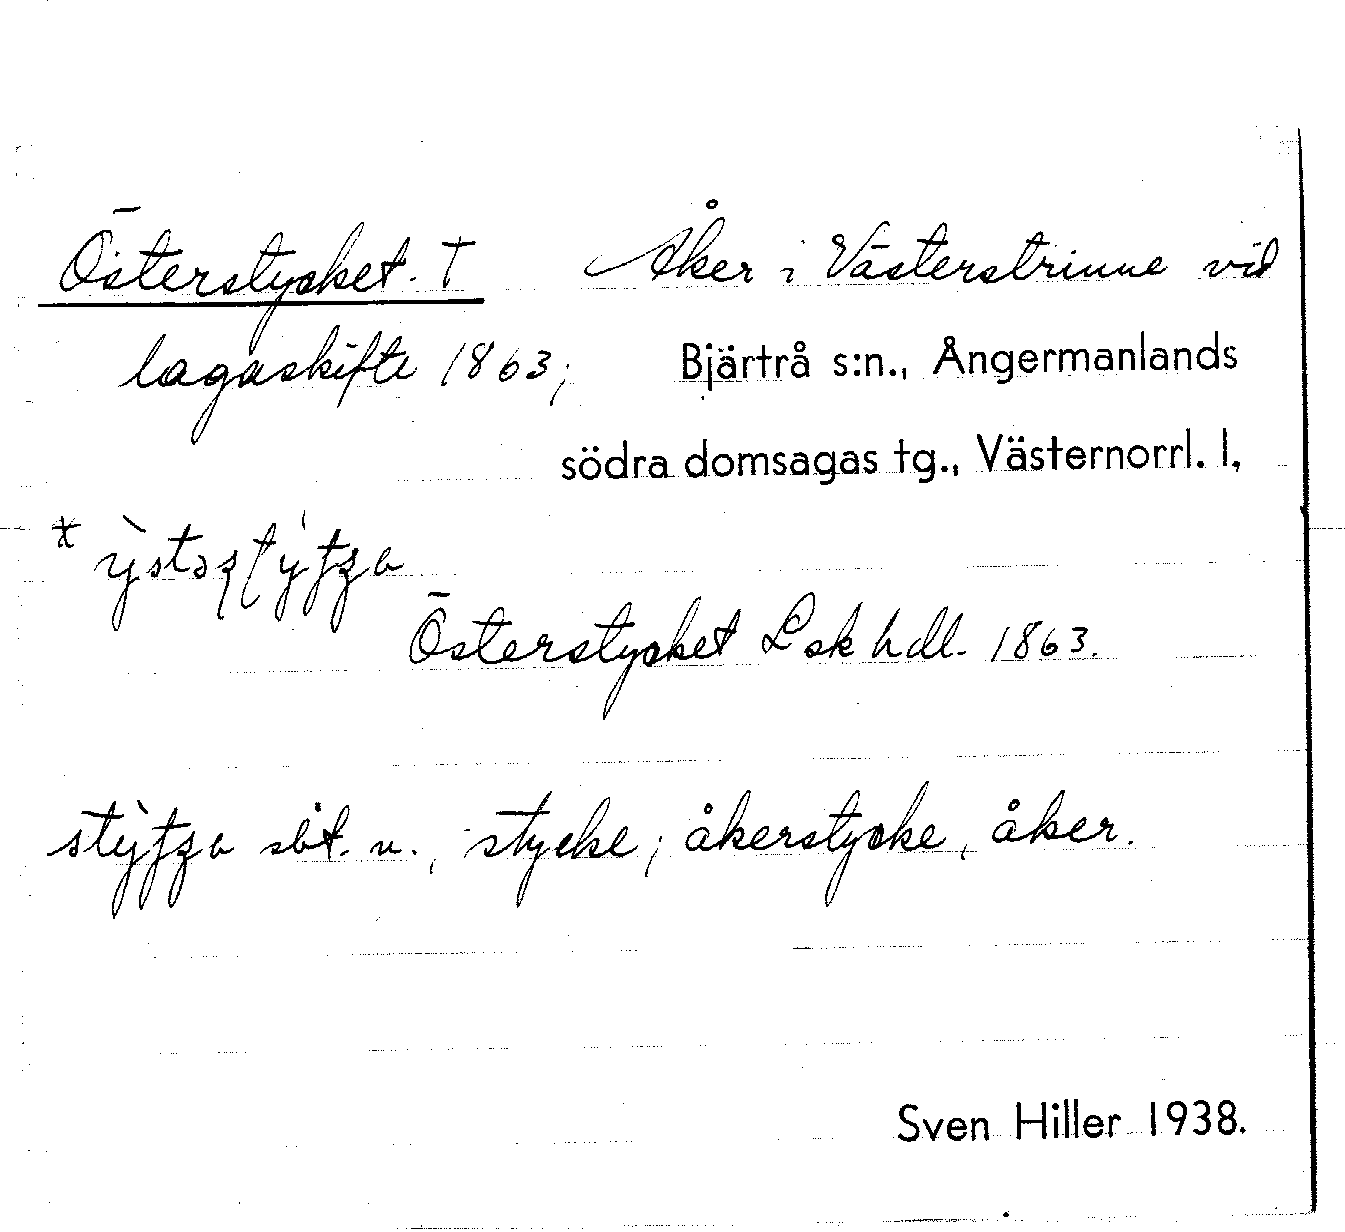 Österstycket. † Åker i Västerstrinne vid
lagaskifte 1863; Bjärtrå s:n., Ångermanlands
södra domsagas tg., Västernorrl. l,
Österstycket Lsk hdl. 1863.
sbt. n., stycke; åkerstycke, åker.
Sven Hiller 1938.